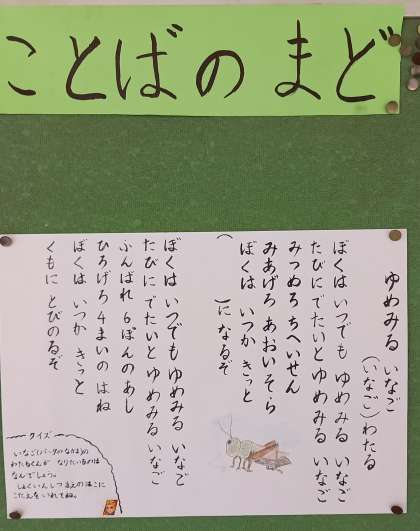 ことばのまど
ゆめみる いなご
(いなご) わたる
ぼくは いつでも ゆめみる いなご
たびに でたいと ゆめみる いなご
みつめろ ちへいせん
みあげろ あおい そら
ぼくは いつか きっと
( )に なるぞ
ぼくは いつでも ゆめみる いなご
たびに でたいと ゆめみる いなご
ふんばれ 6ぽんの あし
ひろげろ 4まいの はね
ぼくは いつか きっと
くもに とびのるぞ
クイズ
いなご(バッタのなかま)の
わたるくんが なりたいものは
なんでしょう。
しょくいんしつまえの はこに
こたえを いれてね。